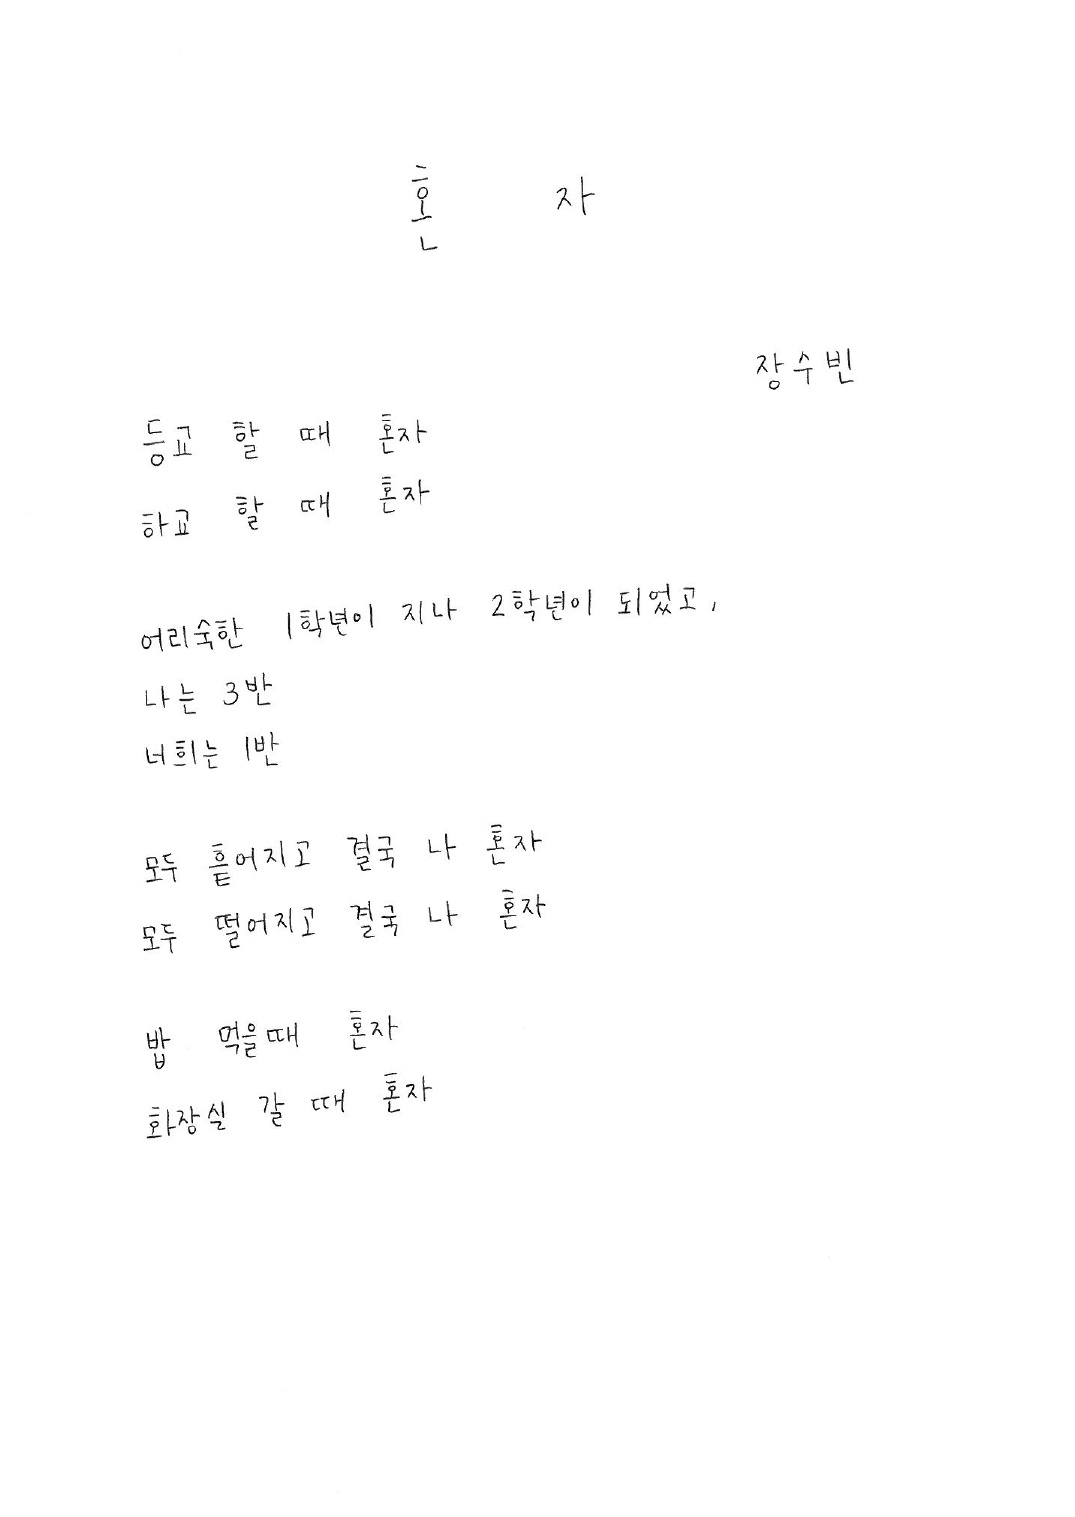 혼 자
장수빈
등교 할 때 혼자
하교 할 때 혼자
어리숙한 1학년이 지나 2학년이 되었고,
나는 3반
너희는 1반
모두 흩어지고 결국 나 혼자
모두 떨어지고 결국 나 혼자
밥 먹을때 혼자
화장실 갈 때 혼자